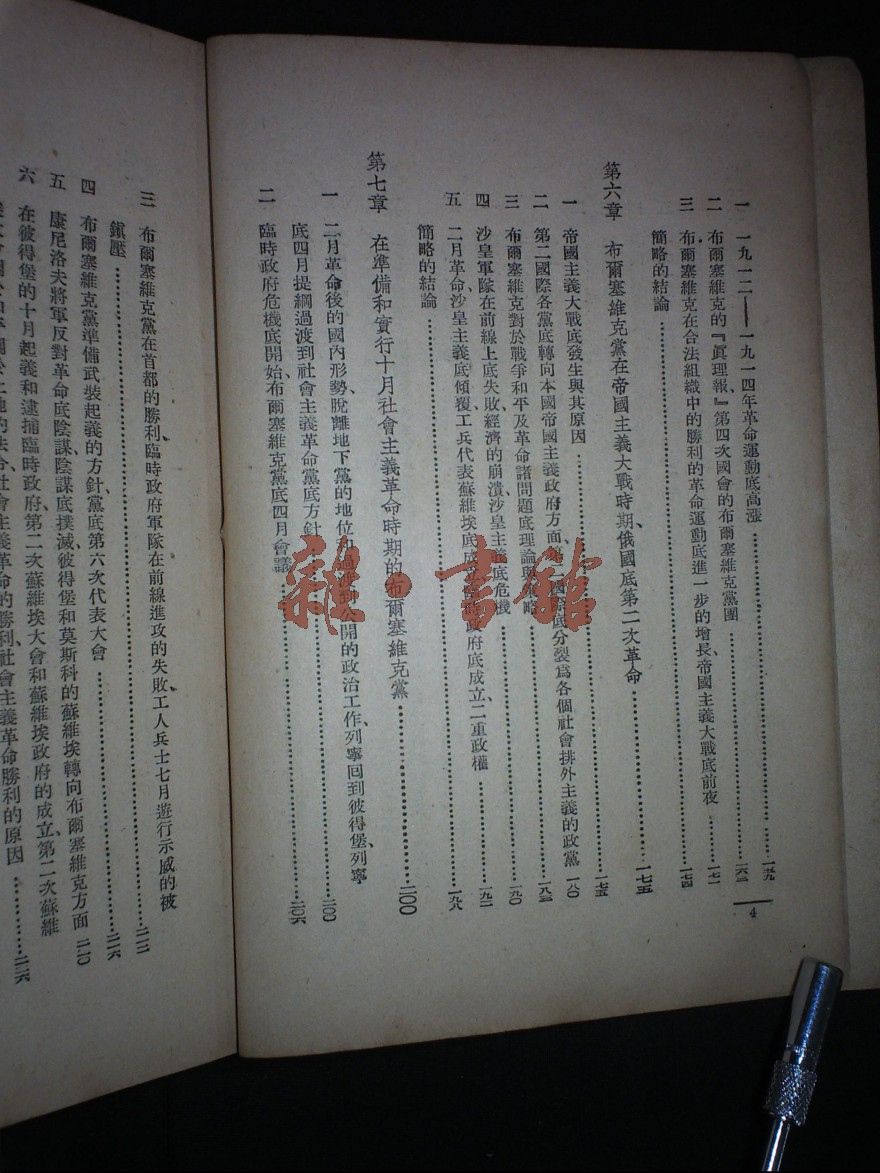 4
一 一九一二——一九一四年革命運動底高漲……一五九
二 布爾塞維克的『眞理報』、第四次國會的布爾塞維克黨團……一六三
三 布爾塞維克在合法組織中的勝利的革命運動底進一步的增長、帝國主義大戰底前夜……一七一
簡略的結論……一七四
第六章 布爾塞維克黨在帝國主義大戰時期、俄國底第二次革命……一七五
一 帝國主義大戰底發生與其原因……一七五
二 第二國際各黨底轉向本國帝國主義政府方面、國際底分裂爲各個社會排外主義的政黨 一八〇
三 布爾塞維克對於戰爭和平及革命諸問題底理論與策略……一八三
四 沙皇軍隊在前線上底失敗、經濟的崩潰、沙皇主義底危機……一九〇
五 二月革命、沙皇主義底傾覆、工兵代表蘇維埃底成立、臨時政府底成立、二重政權……一九二
簡略的結論……一九八
第七章 在準備和實行十月社會主義革命時期的布爾塞維克黨……二〇〇
一 二月革命後的國內形勢、脫離地下黨的地位和過渡到公開的政治工作、列寧回到彼得堡、列寧
底四月提綱、過渡到社會主義革命黨底方針……二〇〇
二 臨時政府危機底開始、布爾塞維克黨底四月會議……二〇六
三 布爾塞維克黨在首都的勝利、臨時政府軍隊在前線進攻的失敗、工人兵士七月遊行示威的被
鎭壓……二一二
四 布爾塞維克黨準備武裝起義的方針、黨底第六次代表大會……二一六
五 康尼洛夫將軍反對革命底陰謀、陰謀底撲滅、彼得堡和莫斯科的蘇維埃轉向布爾塞維克方面 二二〇
六 在彼得堡的十月起義和逮捕臨時政府、第二次蘇維埃大會和蘇維埃政府的成立、第二次蘇維
社會主義革命的勝利、社會主義革命勝利的原因……二二六
雜·書館